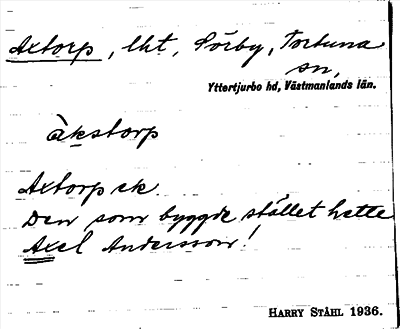 Axtorp, lht, Sörby, Tortuna
sn,
Yttertjurbo hd, Västmanlands län.
àkstorp
Axtorp ek
Den som byggde stället hette
Axel Andersson!
HARRY STÅHL 1936.